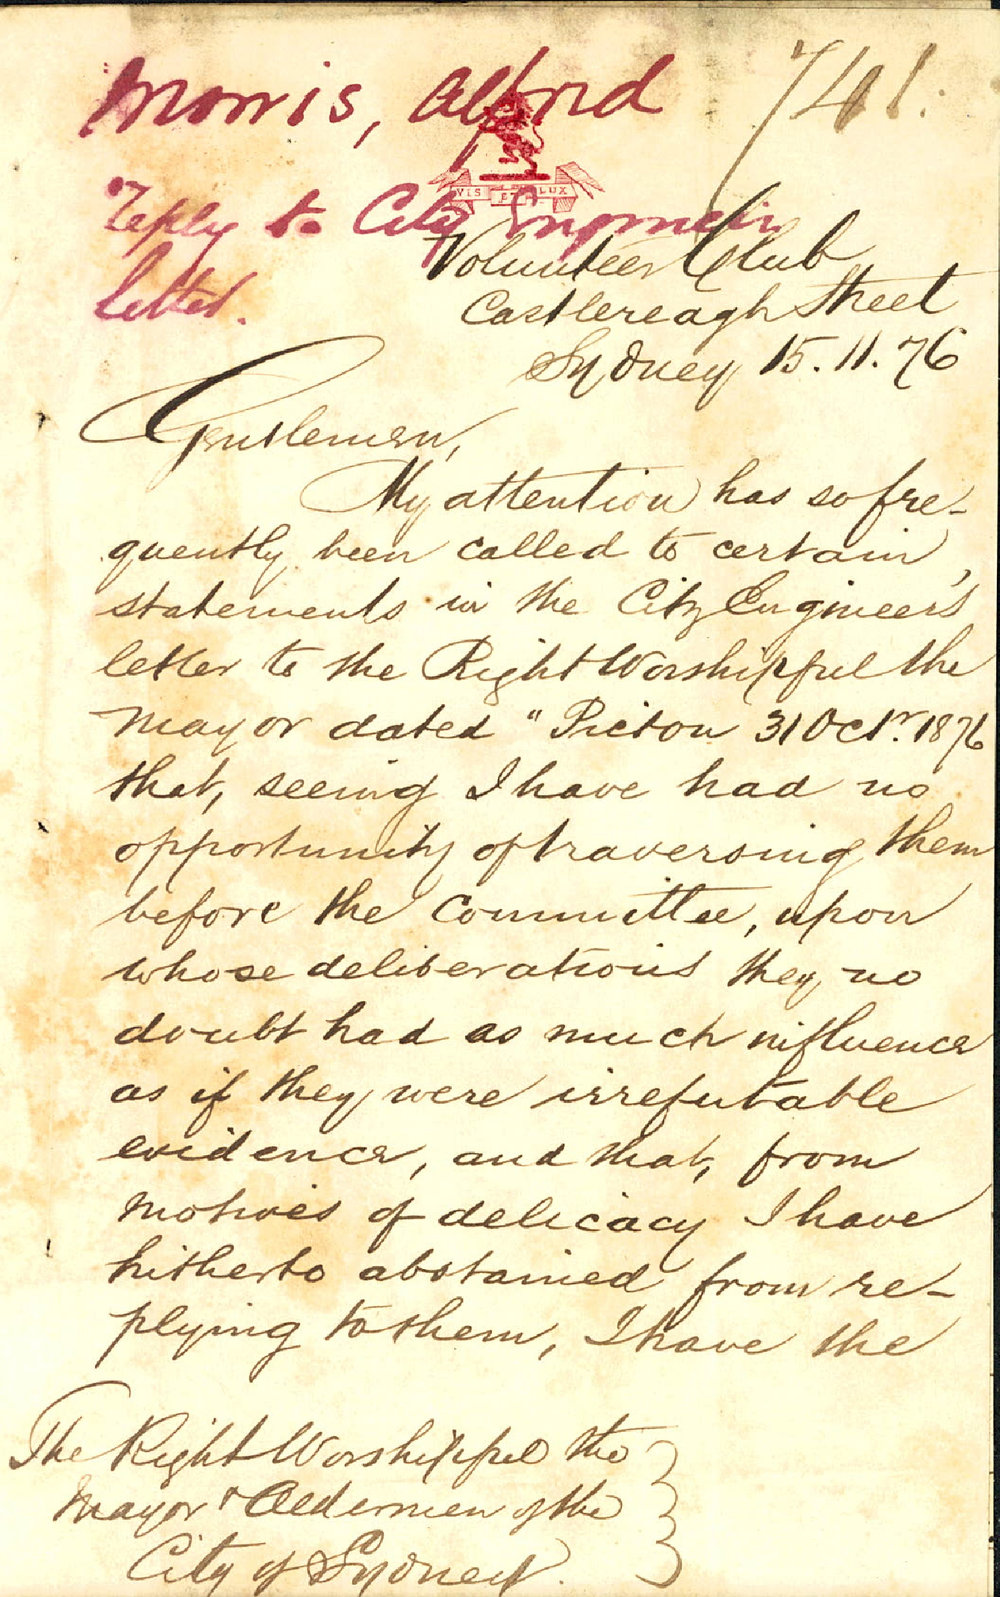 Morris, Alfred
741.
VIS ET LUX
Reply to City Engineer's
letter.
Volunteer Club
Castlereagh Street
Sydney 15.11.76
Gentlemen,
My attention has so fre-
quently been called to certain
statements in the City Engineer's
letter to the Right Worshipful the
Mayor dated "Picton 31 Octr. 1876
that, seeing I have had no
opportunity of traversing them
before the Committee, upon
whose deliberations they no
doubt had as much influence
as if they were irrefutable
evidence, and that, from
motives of delicacy I have
hitherto abstained from re-
plying to them, I have the
The Right Worshipful the
Mayor & Aldermen of the
City of Sydney.